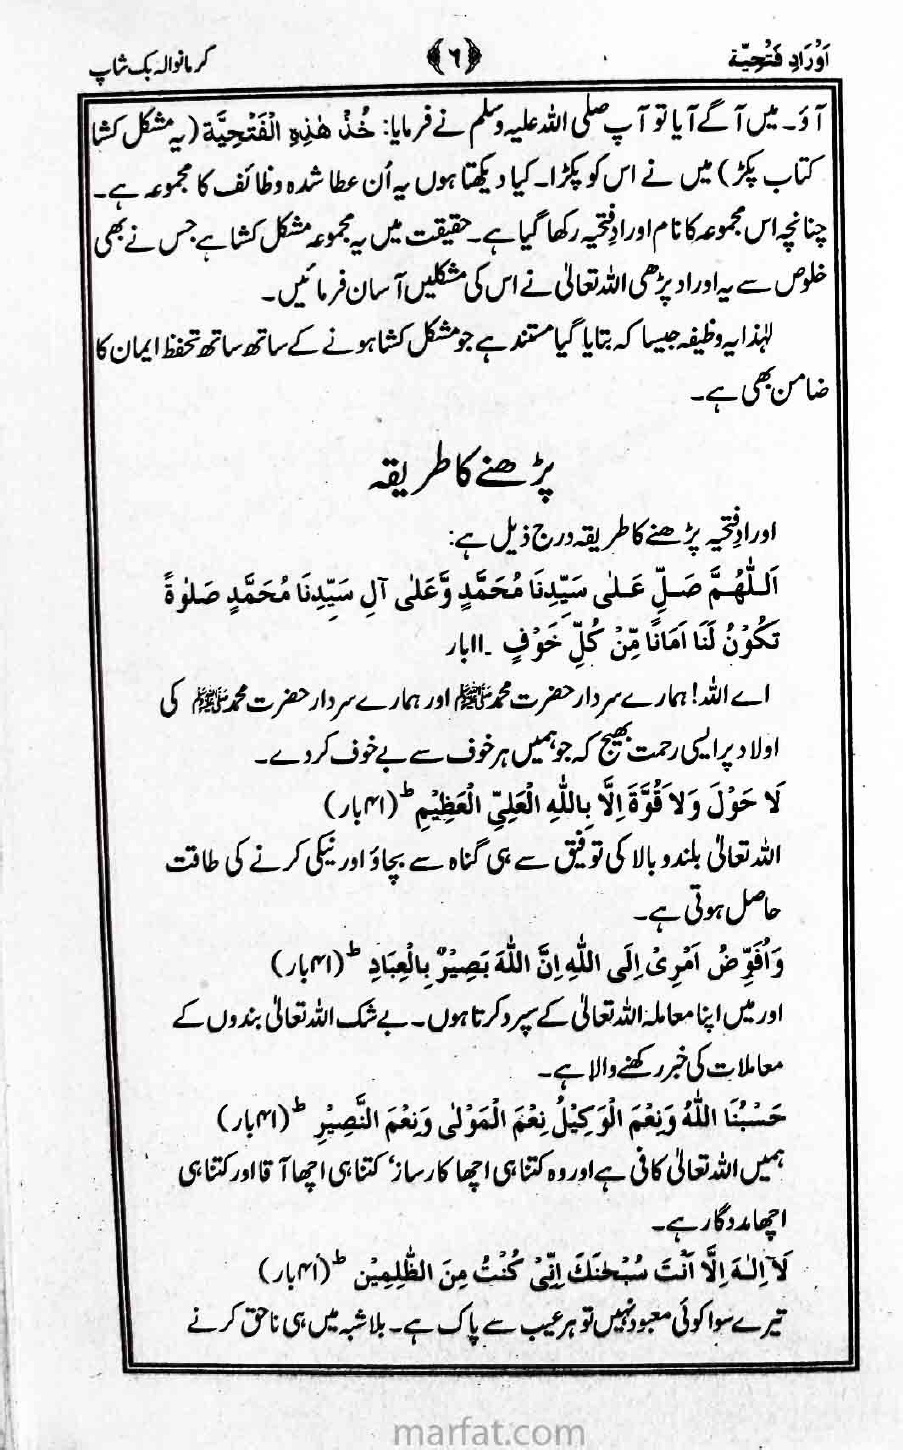 اَوْرَادِ فَتْحِیّة
﴿٦﴾
کرمانوالہ بک شاپ
آؤ۔ میں آگے آیا تو آپ صلی اللہ علیہ وسلم نے فرمایا: خُذْ ھٰذِہِ الْفَتْحِیَّة (یہ مشکل کشا
کتاب پکڑ) میں نے اس کو پکڑا۔ کیا دیکھتا ہوں یہ اُن عطا شدہ وظائف کا مجموعہ ہے۔
چنانچہ اس مجموعہ کا نام اورادِ فتحیہ رکھا گیا ہے۔ حقیقت میں یہ مجموعہ مشکل کشا ہے جس نے بھی
خلوص سے یہ اوراد پڑھی اللہ تعالیٰ نے اس کی مشکلیں آسان فرمائیں۔
لہٰذا یہ وظیفہ جیسا کہ بتایا گیا مستند ہے جو مشکل کشا ہونے کے ساتھ ساتھ تحفظ ایمان کا
ضامن بھی ہے۔
پڑھنے کا طریقہ
اورادِ فتحیہ پڑھنے کا طریقہ درج ذیل ہے:
اَللّٰھُمَّ صَلِّ عَلٰی سَیِّدِنَا مُحَمَّدٍ وَّعَلٰی آلِ سَیِّدِنَا مُحَمَّدٍ صَلٰوۃً
تَکُوْنُ لَنَا اَمَانًا مِّنْ کُلِّ خَوْفٍ ۔۱۱بار
اے اللہ! ہمارے سردار حضرت محمدﷺ اور ہمارے سردار حضرت محمدﷺ کی
اولاد پر ایسی رحمت بھیج کہ جو ہمیں ہر خوف سے بے خوف کردے۔
لَا حَوْلَ وَلَا قُوَّةَ اِلَّا بِاللّٰہِ الْعَلِیِّ الْعَظِیْمِ ؕ (۴۱بار)
اللہ تعالیٰ بلند و بالا کی توفیق سے ہی گناہ سے بچاؤ اور نیکی کرنے کی طاقت
حاصل ہوتی ہے۔
وَاُفَوِّضُ اَمْرِیْ اِلَی اللّٰہِ اِنَّ اللّٰہَ بَصِیْرٌ بِالْعِبَادِ ؕ (۴۱بار)
اور میں اپنا معاملہ اللہ تعالیٰ کے سپرد کرتا ہوں۔ بے شک اللہ تعالیٰ بندوں کے
معاملات کی خبر رکھنے والا ہے۔
حَسْبُنَا اللّٰہُ وَنِعْمَ الْوَکِیْلُ نِعْمَ الْمَوْلٰی وَنِعْمَ النَّصِیْرِ ؕ (۴۱بار)
ہمیں اللہ تعالیٰ کافی ہے اور وہ کتنا ہی اچھا کارساز‘ کتنا ہی اچھا آقا اور کتنا ہی
اچھا مددگار ہے۔
لَآ اِلٰہَ اِلَّا اَنْتَ سُبْحٰنَكَ اِنِّیْ کُنْتُ مِنَ الظّٰلِمِیْن ؕ (۴۱بار)
تیرے سوا کوئی معبود نہیں تو ہر عیب سے پاک ہے۔ بلاشبہ میں ہی ناحق کرنے
marfat.com